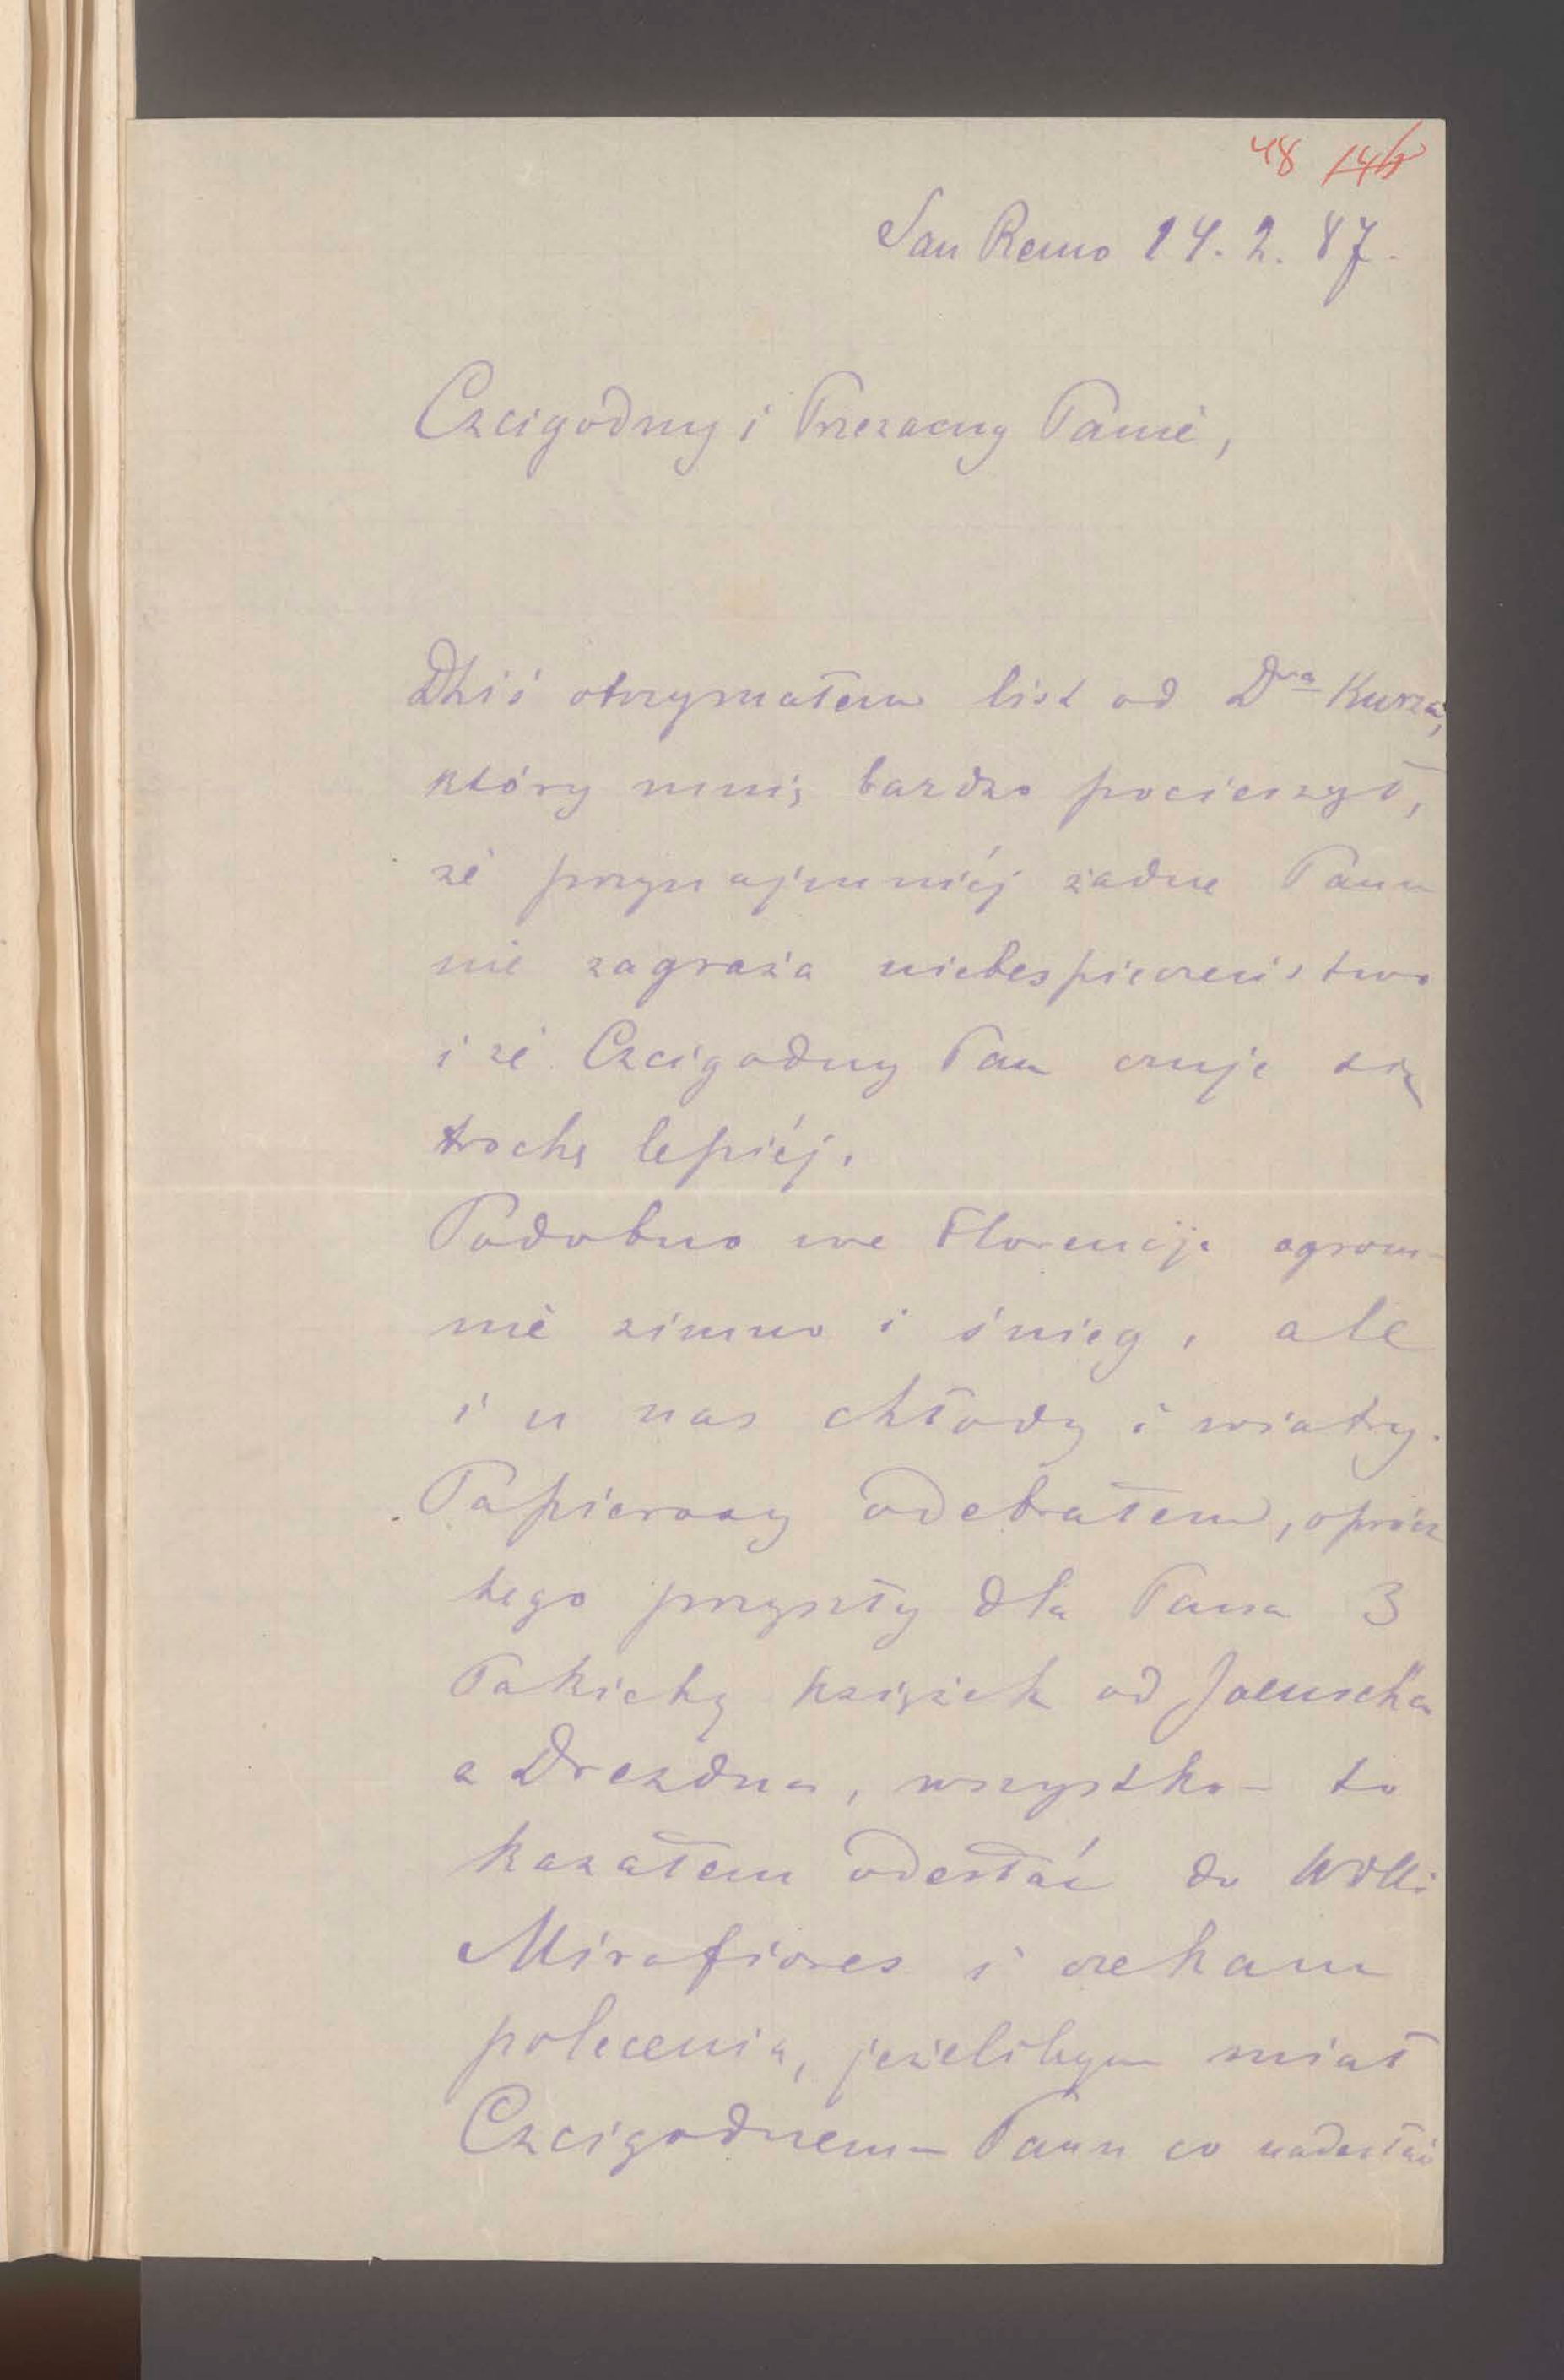 48 146
San Remo 14. 2. 87.
Czcigodny i Przezacny Panie,
Dziś otrzymałem list od Dra Kurza,
który mnię bardzo pocieszył,
że przynajmniéj żadne Panu
nie zagraża niebespieczeństwo
i że Czcigodny Pan czuje się
trochę lepiéj.
Podobno we Florencije ogrom-
nie zimno i śnieg, ale
i u nas chłody i wiatry.
Papierosy odebrałem, oprócz
tego przyszły dla Pana 3
Pakiety książek od
z Drezdna, wszystko to
kazałem odesłać do Willi
Mirafiores i czekam
polecenia, jeżelibym miał
Czcigodnemu Panu co nadesłać